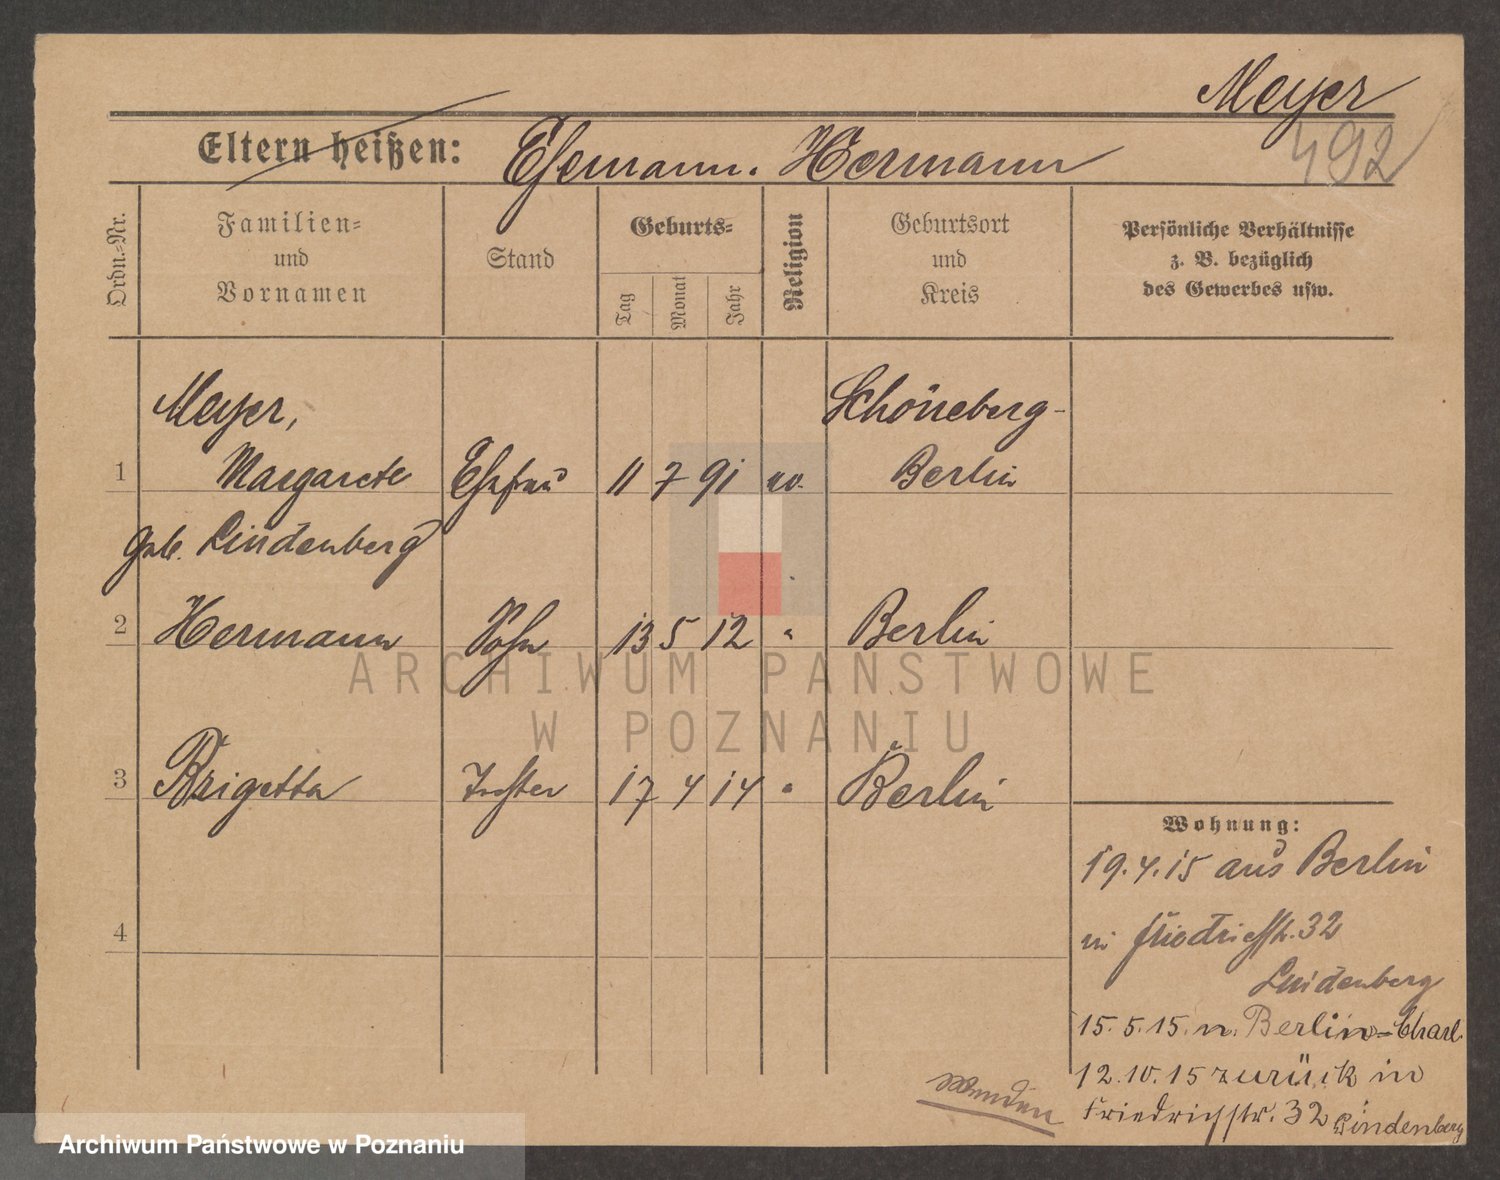 Meyer
492
Eltern heißen: Ehemann. Hermann
Ordn.=Nr.
Familien=
und
Vornamen
Stand
Geburts=
Tag
Monat
Jahr
Religion
Geburtsort
und
Kreis
Persönliche Verhältnisse
z. B. bezüglich
des Gewerbes usw.
Meyer, Schöneberg-
1 Margarete Ehefrau 11 7 91 ev. Berlin
geb. Lindenberg
2 Hermann Sohn 13 5 12 " Berlin
3 Brigetta Tochter 17 4 14 " Berlin
4
Wohnung:
19.4.15 aus Berlin
in Friedrichstr. 32
Lindenberg
15.5.15. n. Berlin=Charl.
12.10.15 zurück in
Friedrichstr. 32 Lindenberg
Wenden
ARCHIWUM PAŃSTWOWE
W POZNANIU
Archiwum Państwowe w Poznaniu